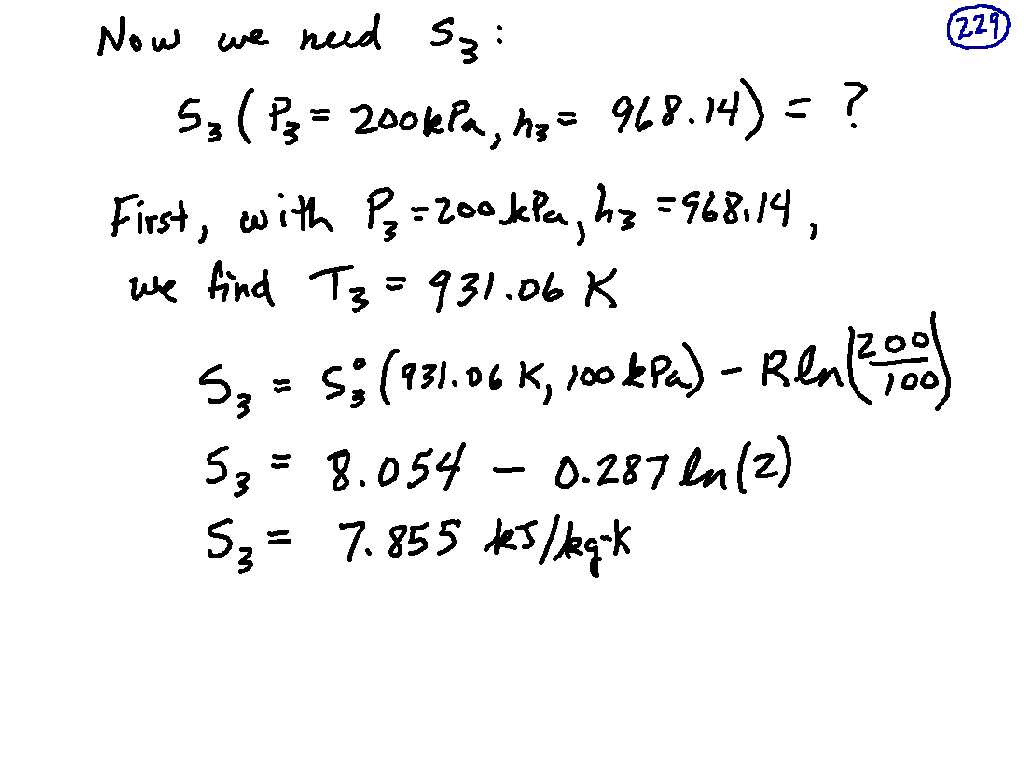 Now we need S₃: (229)
S₃ (P₃ = 200kPa, h₃ = 968.14) = ?
First, with P₃ = 200 kPa, h₃ = 968.14,
we find T₃ = 931.06 K
S₃ = S₃° (931.06 K, 100 kPa) - R ln(200/100)
S₃ = 8.054 - 0.287 ln(2)
S₃ = 7.855 kJ/kg-K